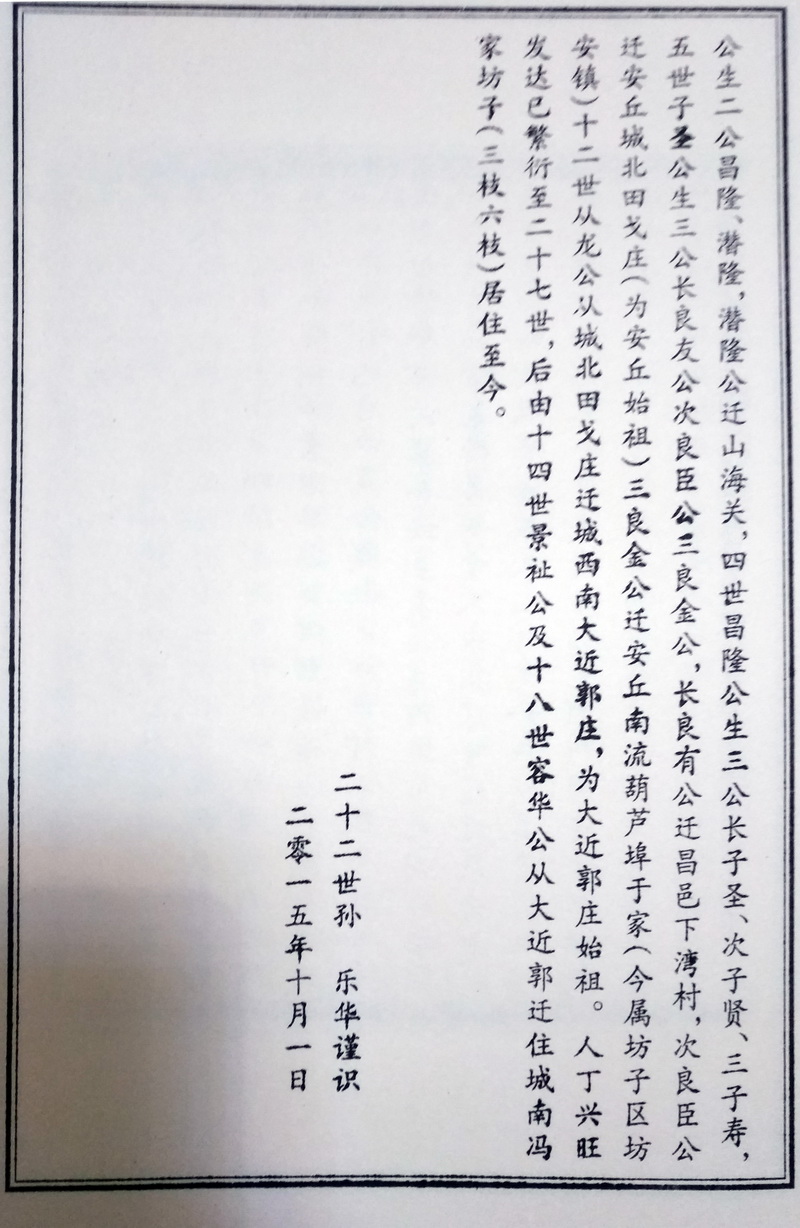 公生二公昌隆、潜隆，潜隆公迁山海关，四世昌隆公生三公长子圣、次子贤、三子寿，
五世子圣公生三公长良友公次良臣公三良金公，长良有公迁昌邑下湾村，次良臣公
迁安丘城北田戈庄（为安丘始祖）三良金公迁安丘南流葫芦埠于家（今属坊子区坊
安镇）十二世从龙公从城北田戈庄迁城西南大近郭庄，为大近郭庄始祖。人丁兴旺
发达已繁衍至二十七世，后由十四世景祉公及十八世容华公从大近郭迁住城南冯
家坊子（三枝六枝）居住至今。
二十二世孙 乐华谨识
二零一五年十月一日